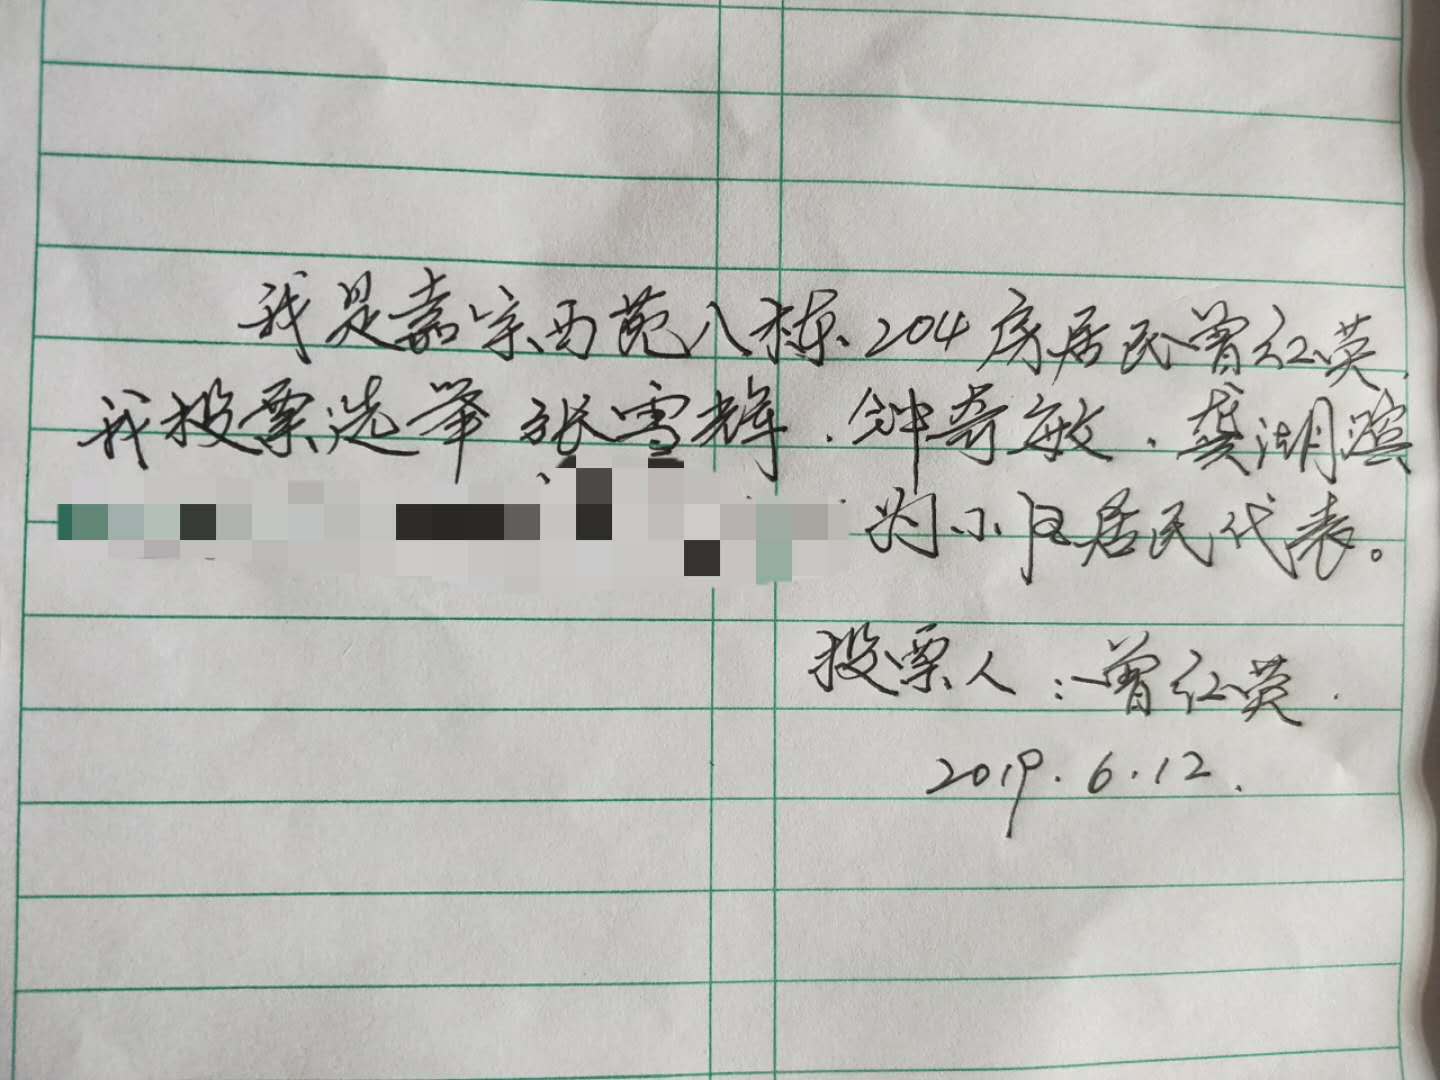 我是嘉宗西苑八栋204房居民曾红英
我投票选举张雪辉、钟寄敏、龚湖滨
为小区居民代表。
投票人:曾红英.
2019.6.12.